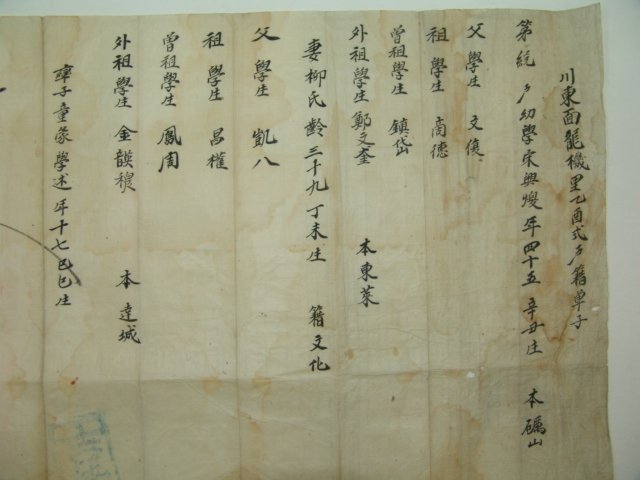 川東面龍機里乙酉式戶籍單子
第 統 戶幼學宋興燮年四十五辛丑生 本礪山
父 學生 文俊
祖 學生 商德
曾祖學生 鎭岱
外祖學生鄭文奎 本東萊
妻柳氏齡三十九丁未生 籍文化
父 學生 凱八
祖 學生 昌權
曾祖學生 鳳周
外祖 學生 金誠穆 本 達城
率子童蒙學述年十七己巳生